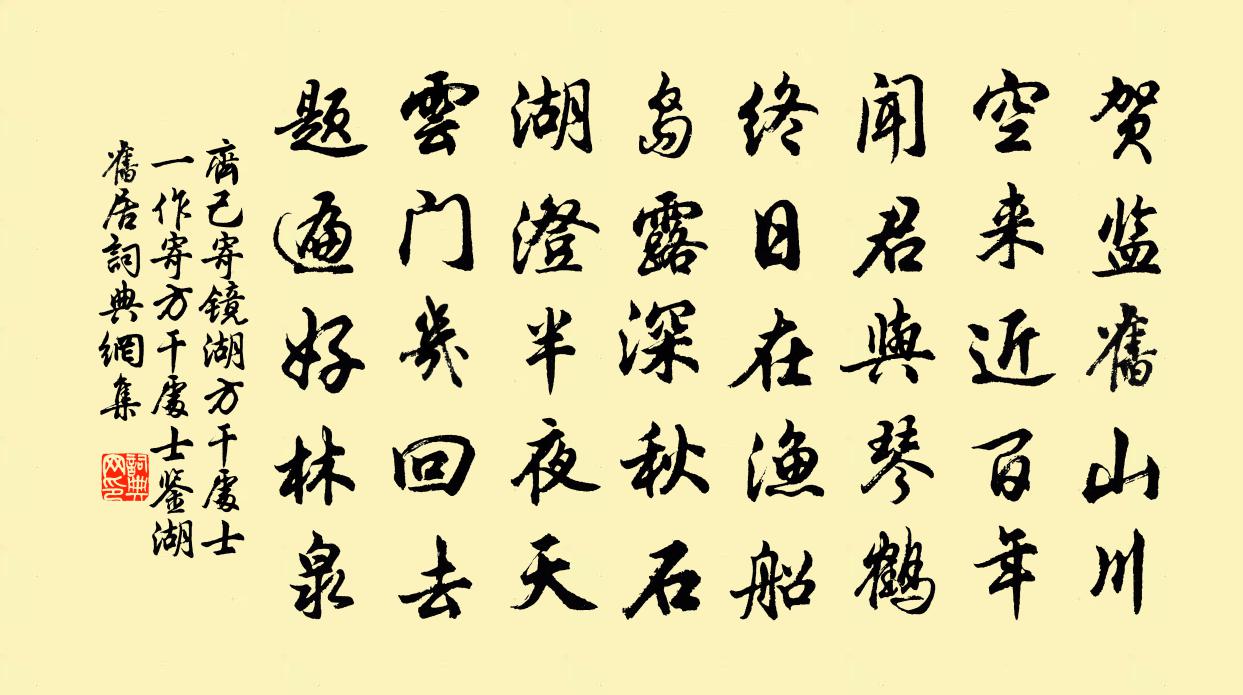 贺监舊山川
空来近百年
闻君與琴鹤
终日在渔船
岛露深秋石
湖澄半夜天
雲门幾回去
题遍好林泉
齊己寄镜湖方干處士
一作寄方干處士鉴湖
舊居詞典網集
詞典網印